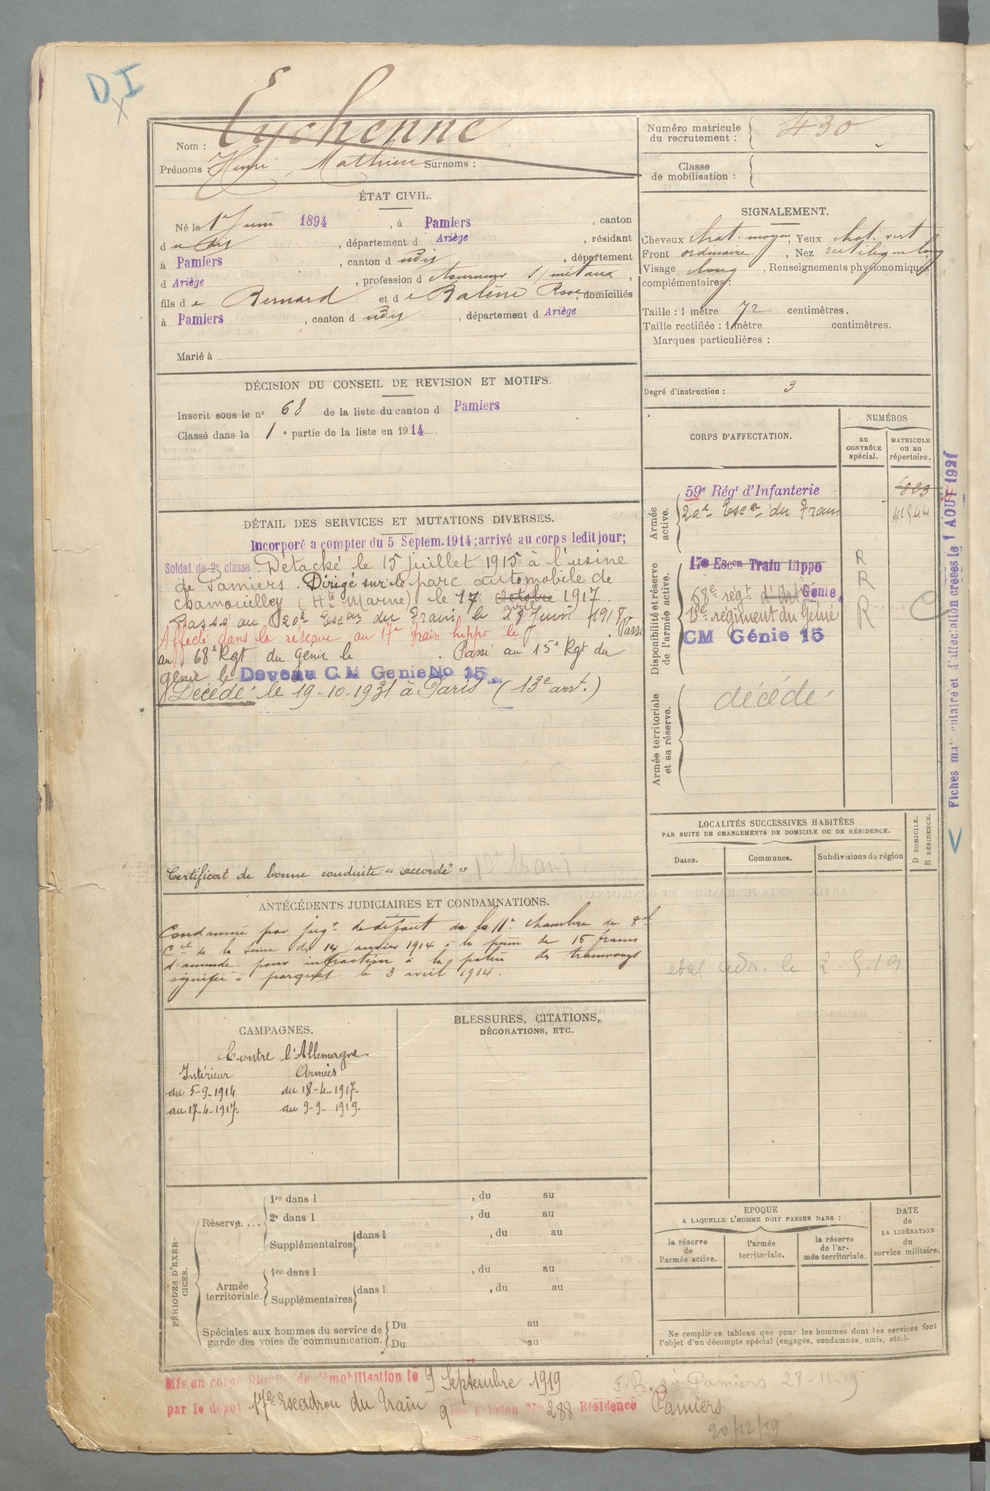 D I
Nom : Eychenne
Prénoms : Henri, Mathieu Surnoms :
Numéro matricule
du recrutement : 430
Classe
de mobilisation :
ÉTAT CIVIL.
Né le 1er Juin 1894, à Pamiers, canton
d u dit, département d Ariège, résidant
à Pamiers, canton d udit, département
d Ariège, profession d tourneur s/ métaux,
fils d e Bernard et d e Balène Rose, domiciliés
à Pamiers, canton d udit, département d Ariège
Marié à
SIGNALEMENT.
Cheveux chat. moyen, Yeux chat. vert
Front ordinaire, Nez rectiligne long
Visage long, Renseignements physionomiques
complémentaires :
Taille : 1 mètre 72 centimètres.
Taille rectifiée : 1 mètre centimètres.
Marques particulières :
Degré d'instruction : 3
DÉCISION DU CONSEIL DE REVISION ET MOTIFS.
Inscrit sous le n° 68 de la liste du canton d Pamiers
Classé dans la 1e partie de la liste en 1914
CORPS D'AFFECTATION.
NUMÉROS
au
CONTRÔLE
spécial.
MATRICULE
ou au
répertoire.
Armée
active.
59e Régt d'Infanterie
20e Escon du Train
Disponibilité et réserve
de l'armée active.
17e Escon Train hippo R
68e régt d'Art Génie R
15e régiment du Génie R
CM Génie 15
Armée territoriale
et sa réserve.
décédé
Fiches matriculaire et d'affectation créées le 1 AOUT 1927
DÉTAIL DES SERVICES ET MUTATIONS DIVERSES.
Incorporé a compter du 5 Septem. 1914; arrivé au corps ledit jour;
Soldat de 2e classe Détaché le 15 juillet 1915 à l'usine
de Pamiers. Dirigé sur le parc automobile de
chamouilley (Hte Marne) le 17 octobre avril 1917
Passé au 20e Escon du Train le 28 Juin 1918
Affecté dans la réserve au 17e train hippo le Passé
au 68e Rgt du Génie le . Passé au 15e Rgt du
génie le Devenu C M Genie No 15
Décédé le 19-10-1931 à Paris (13e arrt.)
Certificat de bonne conduite "accordé"
LOCALITÉS SUCCESSIVES HABITÉES
PAR SUITE DE CHANGEMENTS DE DOMICILE OU DE RÉSIDENCE.
Dates.
Communes.
Subdivisions du région
D DOMICILE.
R RÉSIDENCE.
ANTÉCÉDENTS JUDICIAIRES ET CONDAMNATIONS.
Condamné par jugt de défaut de la 11e chambre du
de la Seine du 14 janvier 1914 à la peine de 16 francs
d'amende pour infraction à la police des tramways
signifié à parquet le 3 avril 1914.
CAMPAGNES.
Contre l'Allemagne
Intérieur Armées
du 5-9-1914 du 18-4-1917.
au 17-4-1917. au 9-9-1919.
BLESSURES, CITATIONS,
DÉCORATIONS, ETC.
PÉRIODES D'EXER-
CICES.
Réserve....
1re dans l , du au
2e dans l , du au
Supplémentaires dans l , du au
Armée
territoriale.
1re dans l , du au
Supplémentaires dans l , du au
Spéciales aux hommes du service de
garde des voies de communication.
Du au
Du au
EPOQUE
A LAQUELLE L'HOMME DOIT PASSER DANS :
la réserve
de
l'armée active.
l'armée
territoriale.
la réserve
de l'ar-
mée territoriale.
DATE
de
LA LIBÉRATION
du
service militaire.
Ne remplir ce tableau que pour les hommes dont les services font
l'objet d'un décompte spécial (engagés, condamnés, omis, etc.).
Mis en congé illimité de démobilisation le 9 Septembre 1919
par le dépôt 17e Escadron du Train 9e Echelon No 288 Résidence Pamiers
20/12/19